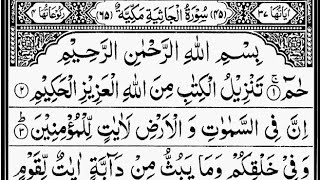 اٰیَاتُهَا ٣٧ (٤٥) سُوْرَةُ الْجَاثِیَةِ مَكِّیَّةٌ (٦٥) رُكُوْعَاتُهَا
بِسْمِ اللّٰهِ الرَّحْمٰنِ الرَّحِیْمِ
حٰمٓ ۚ﴿١﴾ تَنْزِیْلُ الْكِتٰبِ مِنَ اللّٰهِ الْعَزِیْزِ الْحَكِیْمِ ﴿٢﴾
اِنَّ فِی السَّمٰوٰتِ وَ الْاَرْضِ لَاٰیٰتٍ لِّلْمُؤْمِنِیْنَ ؕ﴿٣﴾
وَفِیْ خَلْقِكُمْ وَمَا یَبُثُّ مِنْ دَآبَّةٍ اٰیٰتٌ لِّقَوْمٍ